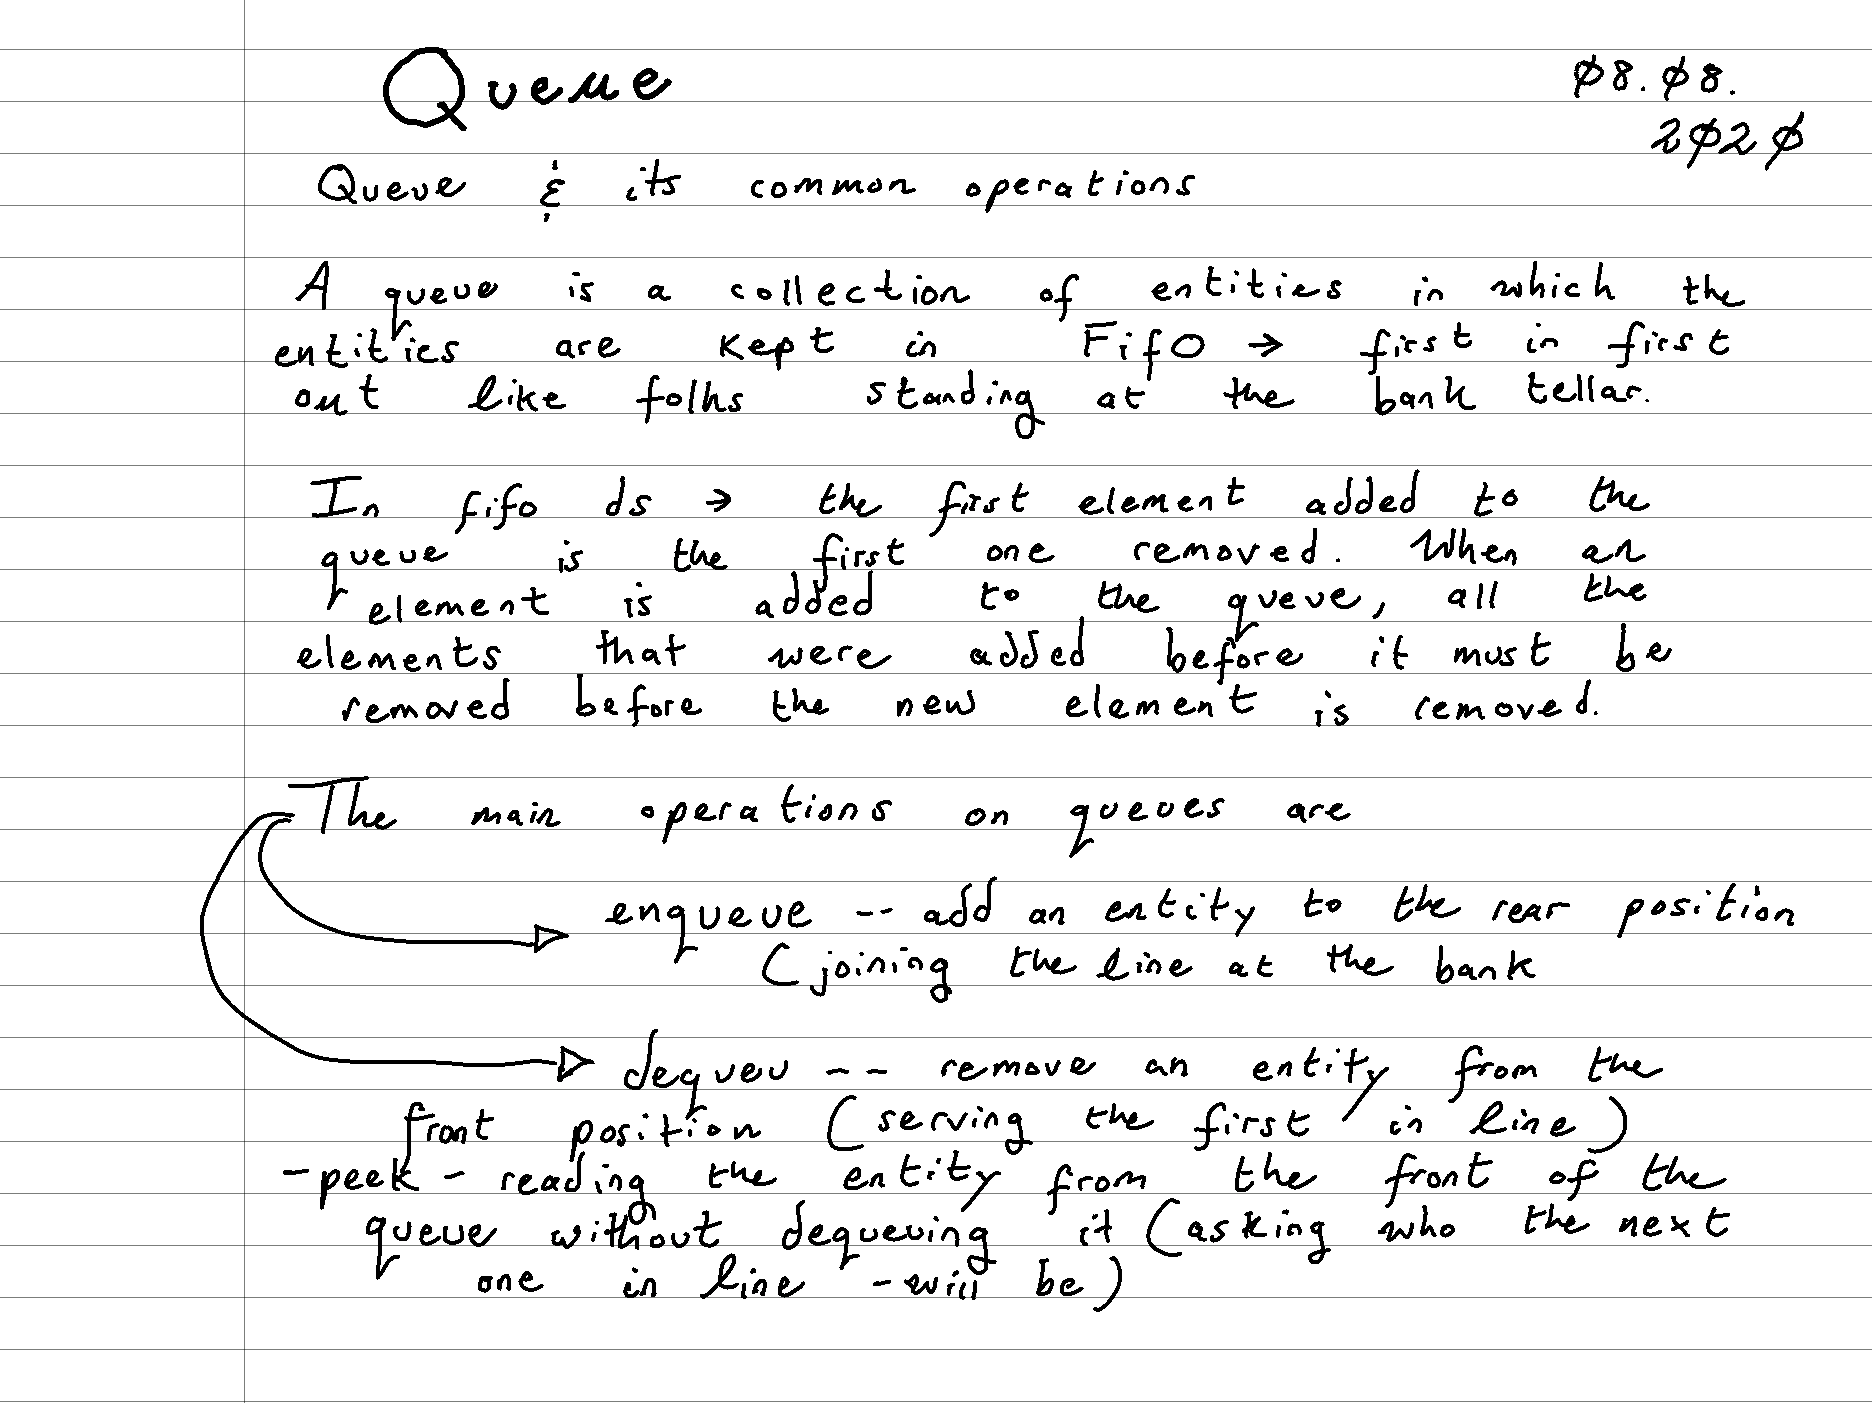 Queue
08.08.
2020
Queue & its common operations
A queue is a collection of entities in which the
entities are kept in FifO → first in first
out like folks standing at the bank tellar.
In fifo ds → the first element added to the
queue is the first one removed. When an
element is added to the queue, all the
elements that were added before it must be
removed before the new element is removed.
The main operations on queues are
enqueue -- add an entity to the rear position
(joining the line at the bank
dequeu -- remove an entity from the
front position (serving the first in line)
-peek - reading the entity from the front of the
queue without dequeuing it (asking who the next
one in line -will be)